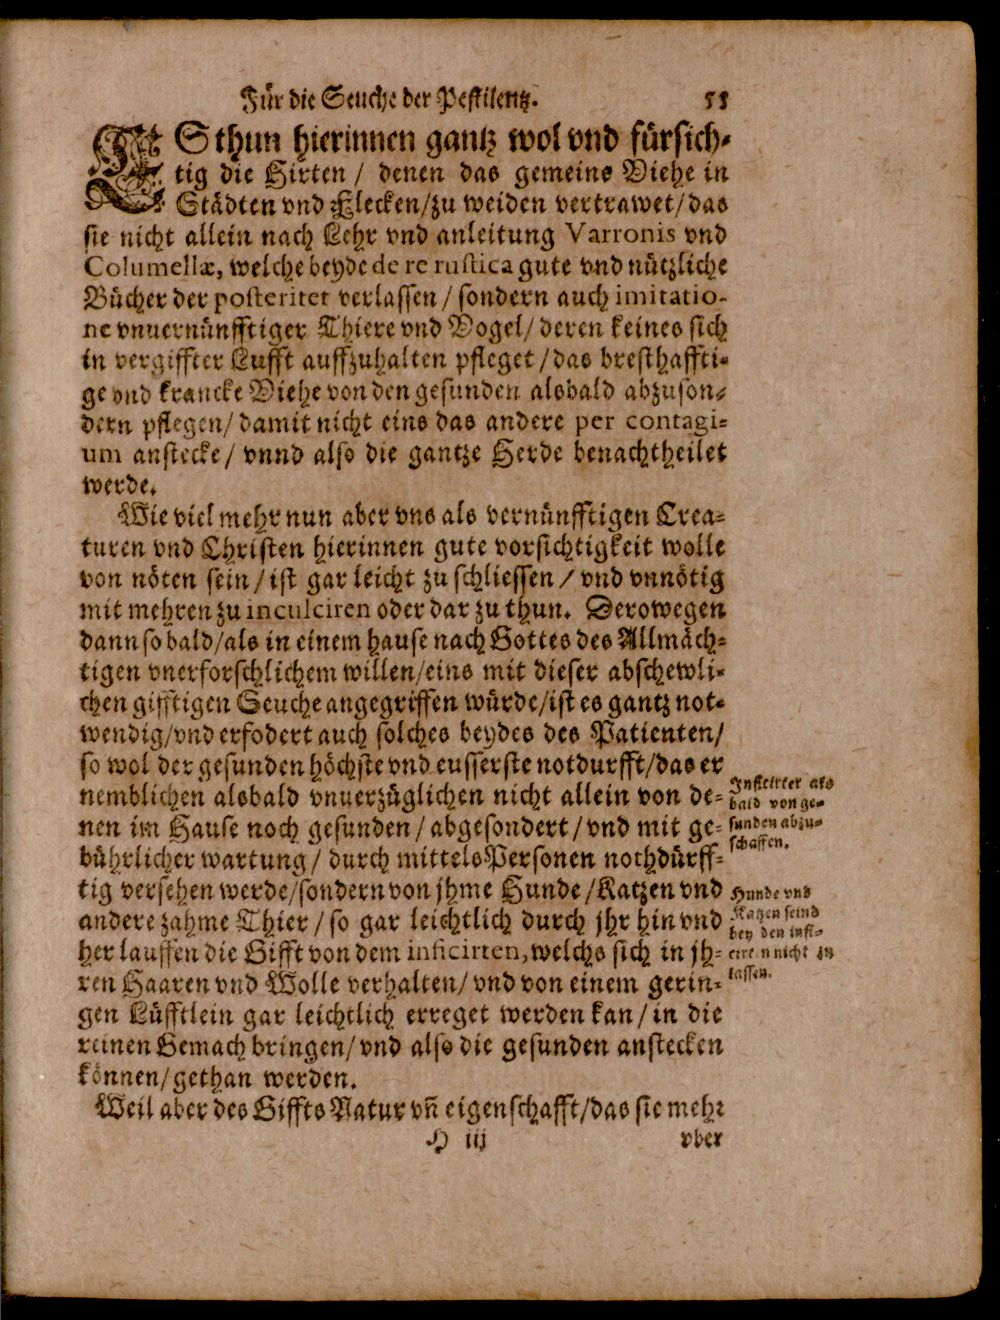 Für die Seuche der Pestilentz. 55
ES thun hierinnen gantz wol vnd fürsich-
tig die Hirten / denen das gemeine Viehe in
Städten vnd Flecken/zu weiden vertrawet/das
sie nicht allein nach Lehr vnd anleitung Varronis vnd
Columellæ, welche beyde de re rustica gute vnd nützliche
Bücher der posteritet verlassen / sondern auch imitatio-
ne vnuernünfftiger Thiere vnd Vogel/ deren keines sich
in vergiffter Lufft auffzuhalten pfleget / das bresthaffti-
ge vnd krancke Viehe von den gesunden alsbald abzuson-
dern pflegen/ damit nicht eins das andere per contagi-
um anstecke/ vnnd also die gantze Herde benachtheilet
werde.
Wie viel mehr nun aber vns als vernünfftigen Crea-
turen vnd Christen hierinnen gute vorsichtigkeit wolle
von nöten sein/ist gar leicht zu schliessen / vnd vnnötig
mit mehren zu inculciren oder dar zu thun. Derowegen
dann so bald/als in einem hause nach Gottes des Allmäch-
tigen vnerforschlichem willen/eins mit dieser abschewli-
chen gifftigen Seuche angegriffen würde/ist es gantz not-
wendig/vnd erfodert auch solches beydes des Patienten/
so wol der gesunden höchste vnd eusserste notdurfft/das er
nemblichen alsbald vnuerzüglichen nicht allein von de-
nen im Hause noch gesunden / abgesondert / vnd mit ge-
bührlicher wartung / durch mittels Personen nothdürff-
tig versehen werde/sondern von jhme Hunde /Katzen vnd
andere zahme Thier / so gar leichtlich durch jhr hin vnd
her lauffen die Gifft von dem inficirten, welchs sich in jh-
ren Haaren vnd Wolle verhalten/ vnd von einem gerin-
gen Lüfftlein gar leichtlich erreget werden kan/ in die
reinen Gemach bringen/ vnd also die gesunden anstecken
können/gethan werden.
Weil aber des Giffts Natur vn̄ eigenschafft/das sie mehr
H iij vber
Inficirter als
bald von ge-
sunden abzu-
schaffen.
Hunde vnd
Katzen seind
bey den infi-
cirten nicht zu
lassen.